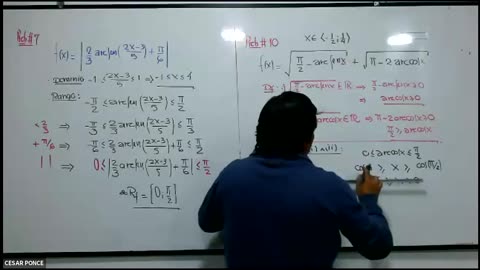 Prob#7
f(x) = | 2/3 arcsen((2x-3)/5) + π/6 |
Dominio: -1 ≤ (2x-3)/5 ≤ 1 → -1 ≤ x ≤ 4
Rango:
-π/2 ≤ arcsen((2x-3)/5) ≤ π/2
× 2/3 ⇒ -π/3 ≤ 2/3 arcsen((2x-3)/5) ≤ π/3
+ π/6 ⇒ -π/6 ≤ 2/3 arcsen((2x-3)/5) + π/6 ≤ π/2
| | ⇒ 0 ≤ | 2/3 arcsen((2x-3)/5) + π/6 | ≤ π/2
∴ Rf = [0; π/2]
Prob#10
f(x) = √(π/2 - arcsenx) + √(π - 2arccosx)
π/2 - arcsenx ∈ ℝ → π/2 - arcsenx ≥ 0
→ arccosx ≥ 0
arccosx ∈ ℝ → π - 2arccosx ≥ 0
π/2 ≥ arccosx
0 ≤ arccosx ≤ π/2
≥ x ≥ cos(π/2)
CESAR PONCE